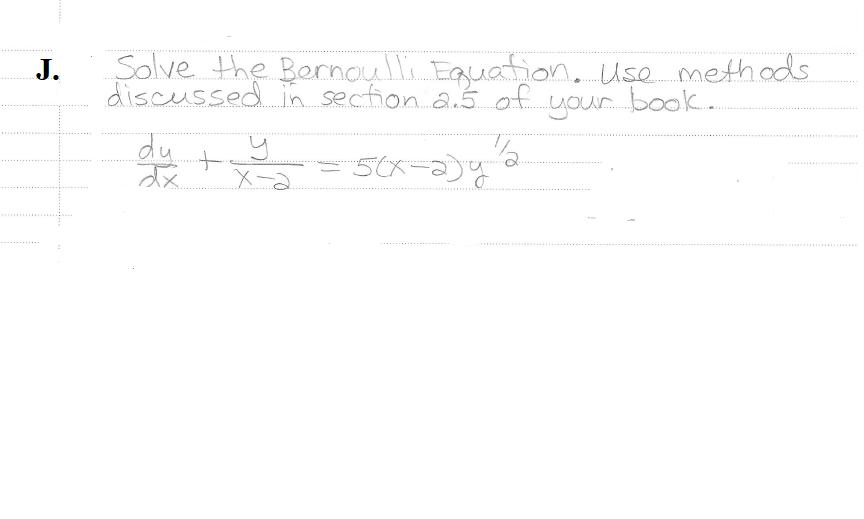 J. Solve the Bernoulli Equation. Use methods
discussed in section 2.5 of your book.
dy/dx + y/(x-2) = 5(x-2)y^1/2